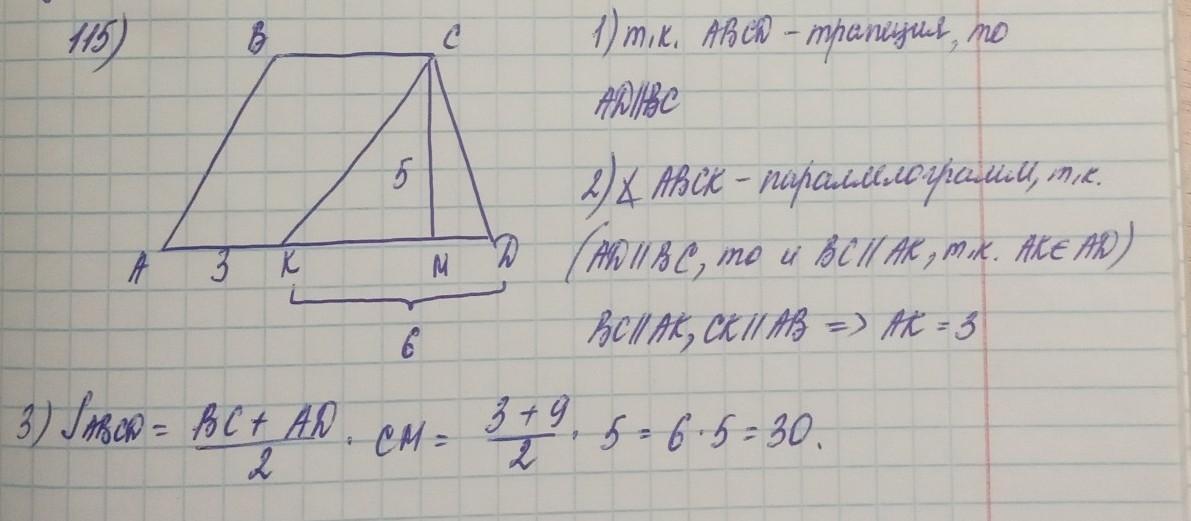 115)
B C
5
A 3 K M D
6
1) т.к. ABCD - трапеция, то
AD||BC
2) ∡ ABCK - параллелограмм, т.к.
(AD||BC, то и BC||AK, т.к. AK∈AD)
BC||AK, CK||AB => AK = 3
3) S_ABCD = (BC + AD)/2 · CM = (3 + 9)/2 · 5 = 6 · 5 = 30.